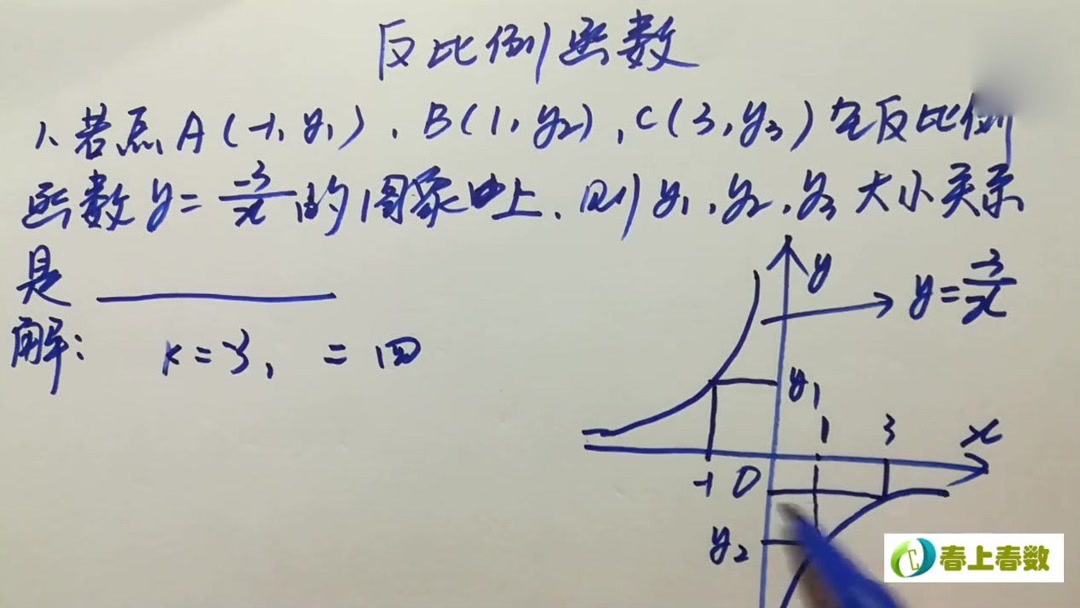 反比例函数
1、若点A(-1, y₁)、B(1, y₂)、C(3, y₃)在反比例
函数y=-3/x的图象中上、则y₁、y₂、y₃大小关系
是
解: k=-3, 二四
y
y=-3/x
y₁
1 3 x
-1 0
y₂
春上春数